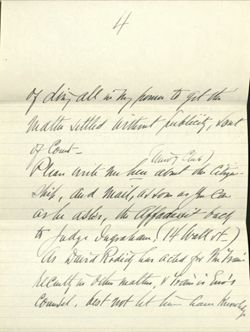 4
of doing all in my power to get the
matter settled without publicity, & out
of Court —
Please write me here about the Citizen
Ship, and mail, as soon as you can
as he asks, the affidavit back
to Judge Ingraham, (14 Wall st.)
As David has acted for
recently in other matters, &
Counsel, best not let him